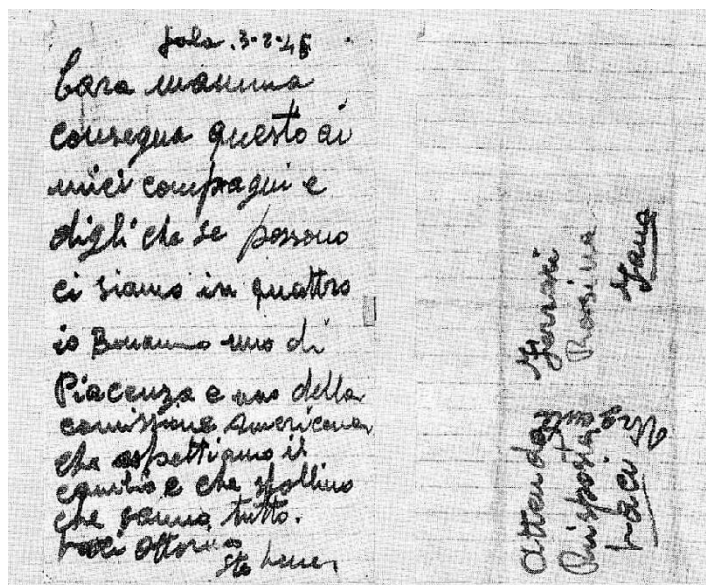 3-2-45
Cara mamma
consegna questo ai
miei compagni e
digli che se possono
ci siamo in quattro
io Bonanno uno di
Piacenza e uno della
comissione Americana
che aspettiamo il
cambio e che
che sanno tutto.
baci
Sto bene
Ferrari
Rosina
Attendo
Risposta
baci
Urgente